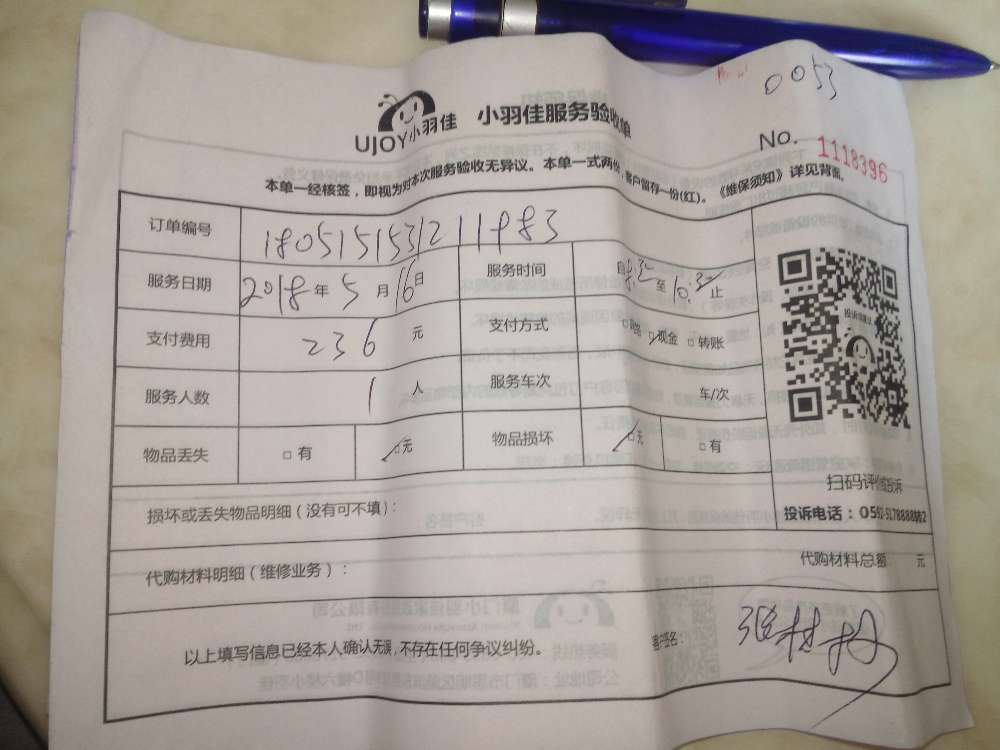 0053
UJOY小羽佳 小羽佳服务验收单
No. 1118396
本单一经核签，即视为对本次服务验收无异议。本单一式两份，客户留存一份(红)。《维保须知》详见背面。
订单编号 1805151531211983
服务日期 2018年5月16日 服务时间 自8:30至10:30止
支付费用 236元 支付方式 □ 现金 □转账
服务人数 1人 服务车次 车/次
物品丢失 □有 □无 物品损坏 □无 □有
扫码评价投诉
损坏或丢失物品明细（没有可不填）：
投诉电话：0592-5178888转2
代购材料明细（维修业务）： 代购材料总额 元
以上填写信息已经本人确认无误，不存在任何争议纠纷。 客户签名：